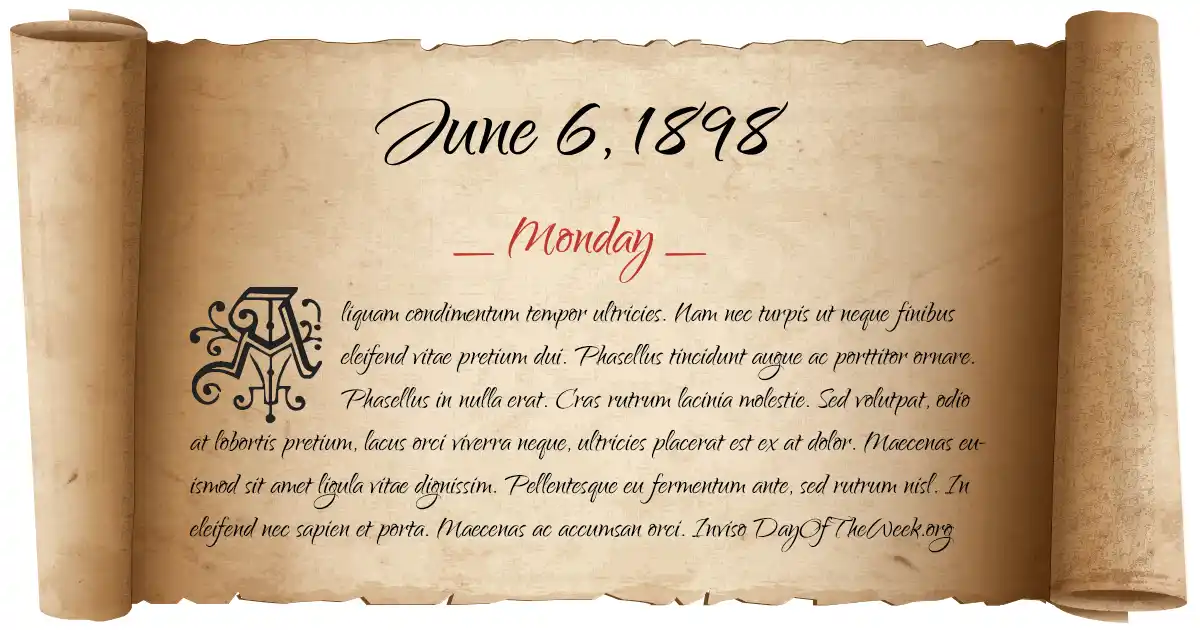 June 6, 1898
__ Monday __
Aliquam condimentum tempor ultricies. Nam nec turpis ut neque finibus
eleifend vitae pretium dui. Phasellus tincidunt augue ac porttitor ornare.
Phasellus in nulla erat. Cras rutrum lacinia molestie. Sed volutpat, odio
at lobortis pretium, lacus orci viverra neque, ultricies placerat est ex at dolor. Maecenas eu-
ismod sit amet ligula vitae dignissim. Pellentesque eu fermentum ante, sed rutrum nisl. In
eleifend nec sapien et porta. Maecenas ac accumsan orci. Inviso DayOfTheWeek.org